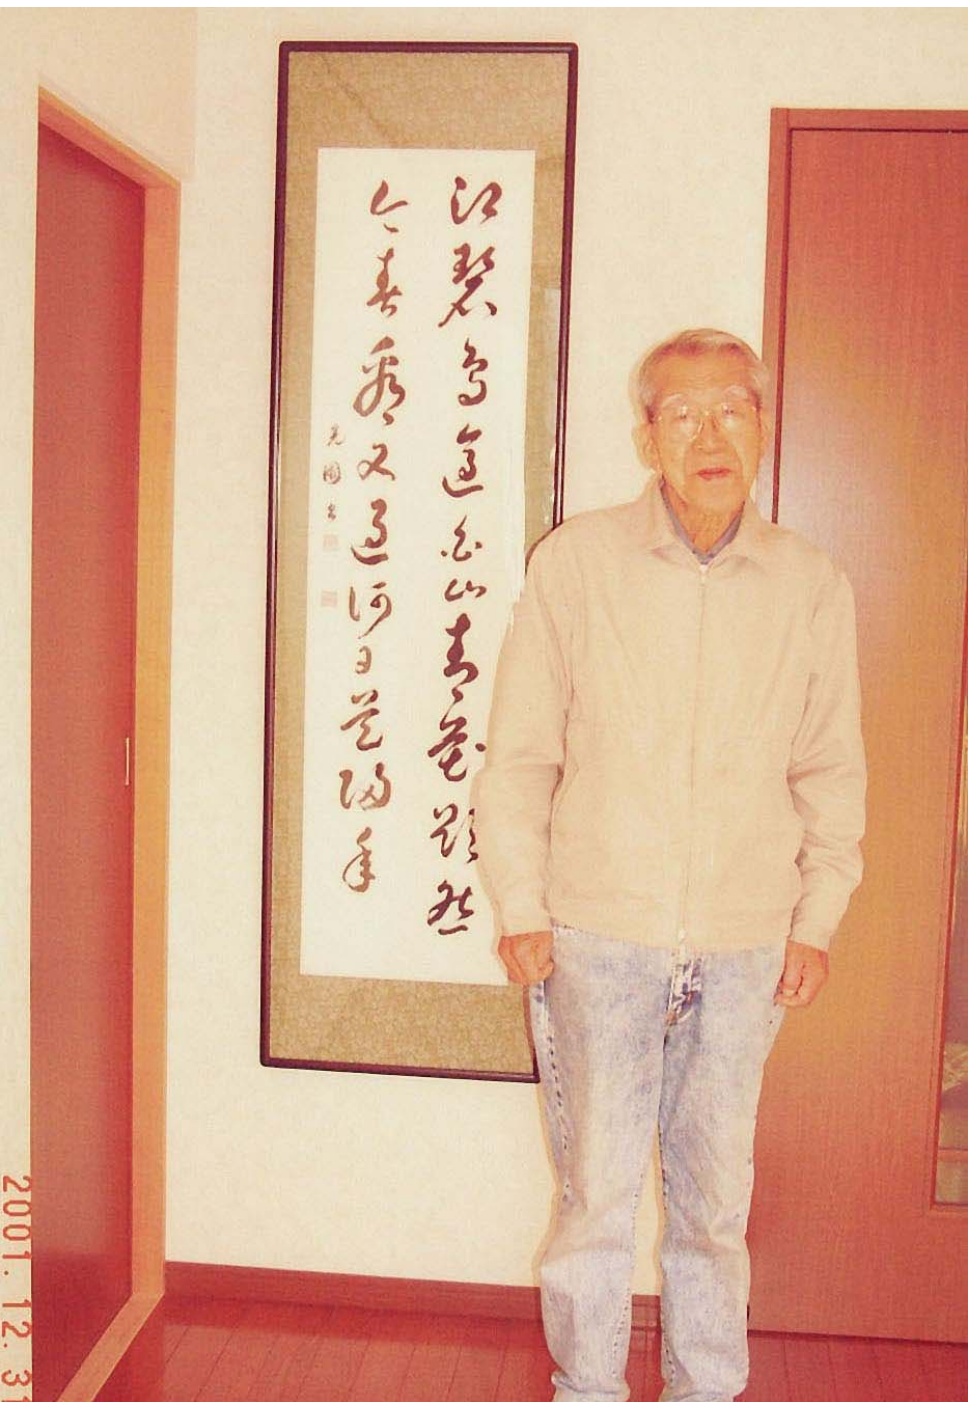 江碧鳥逾白山青花欲然
今春看又過何日是歸年
2001.12.31